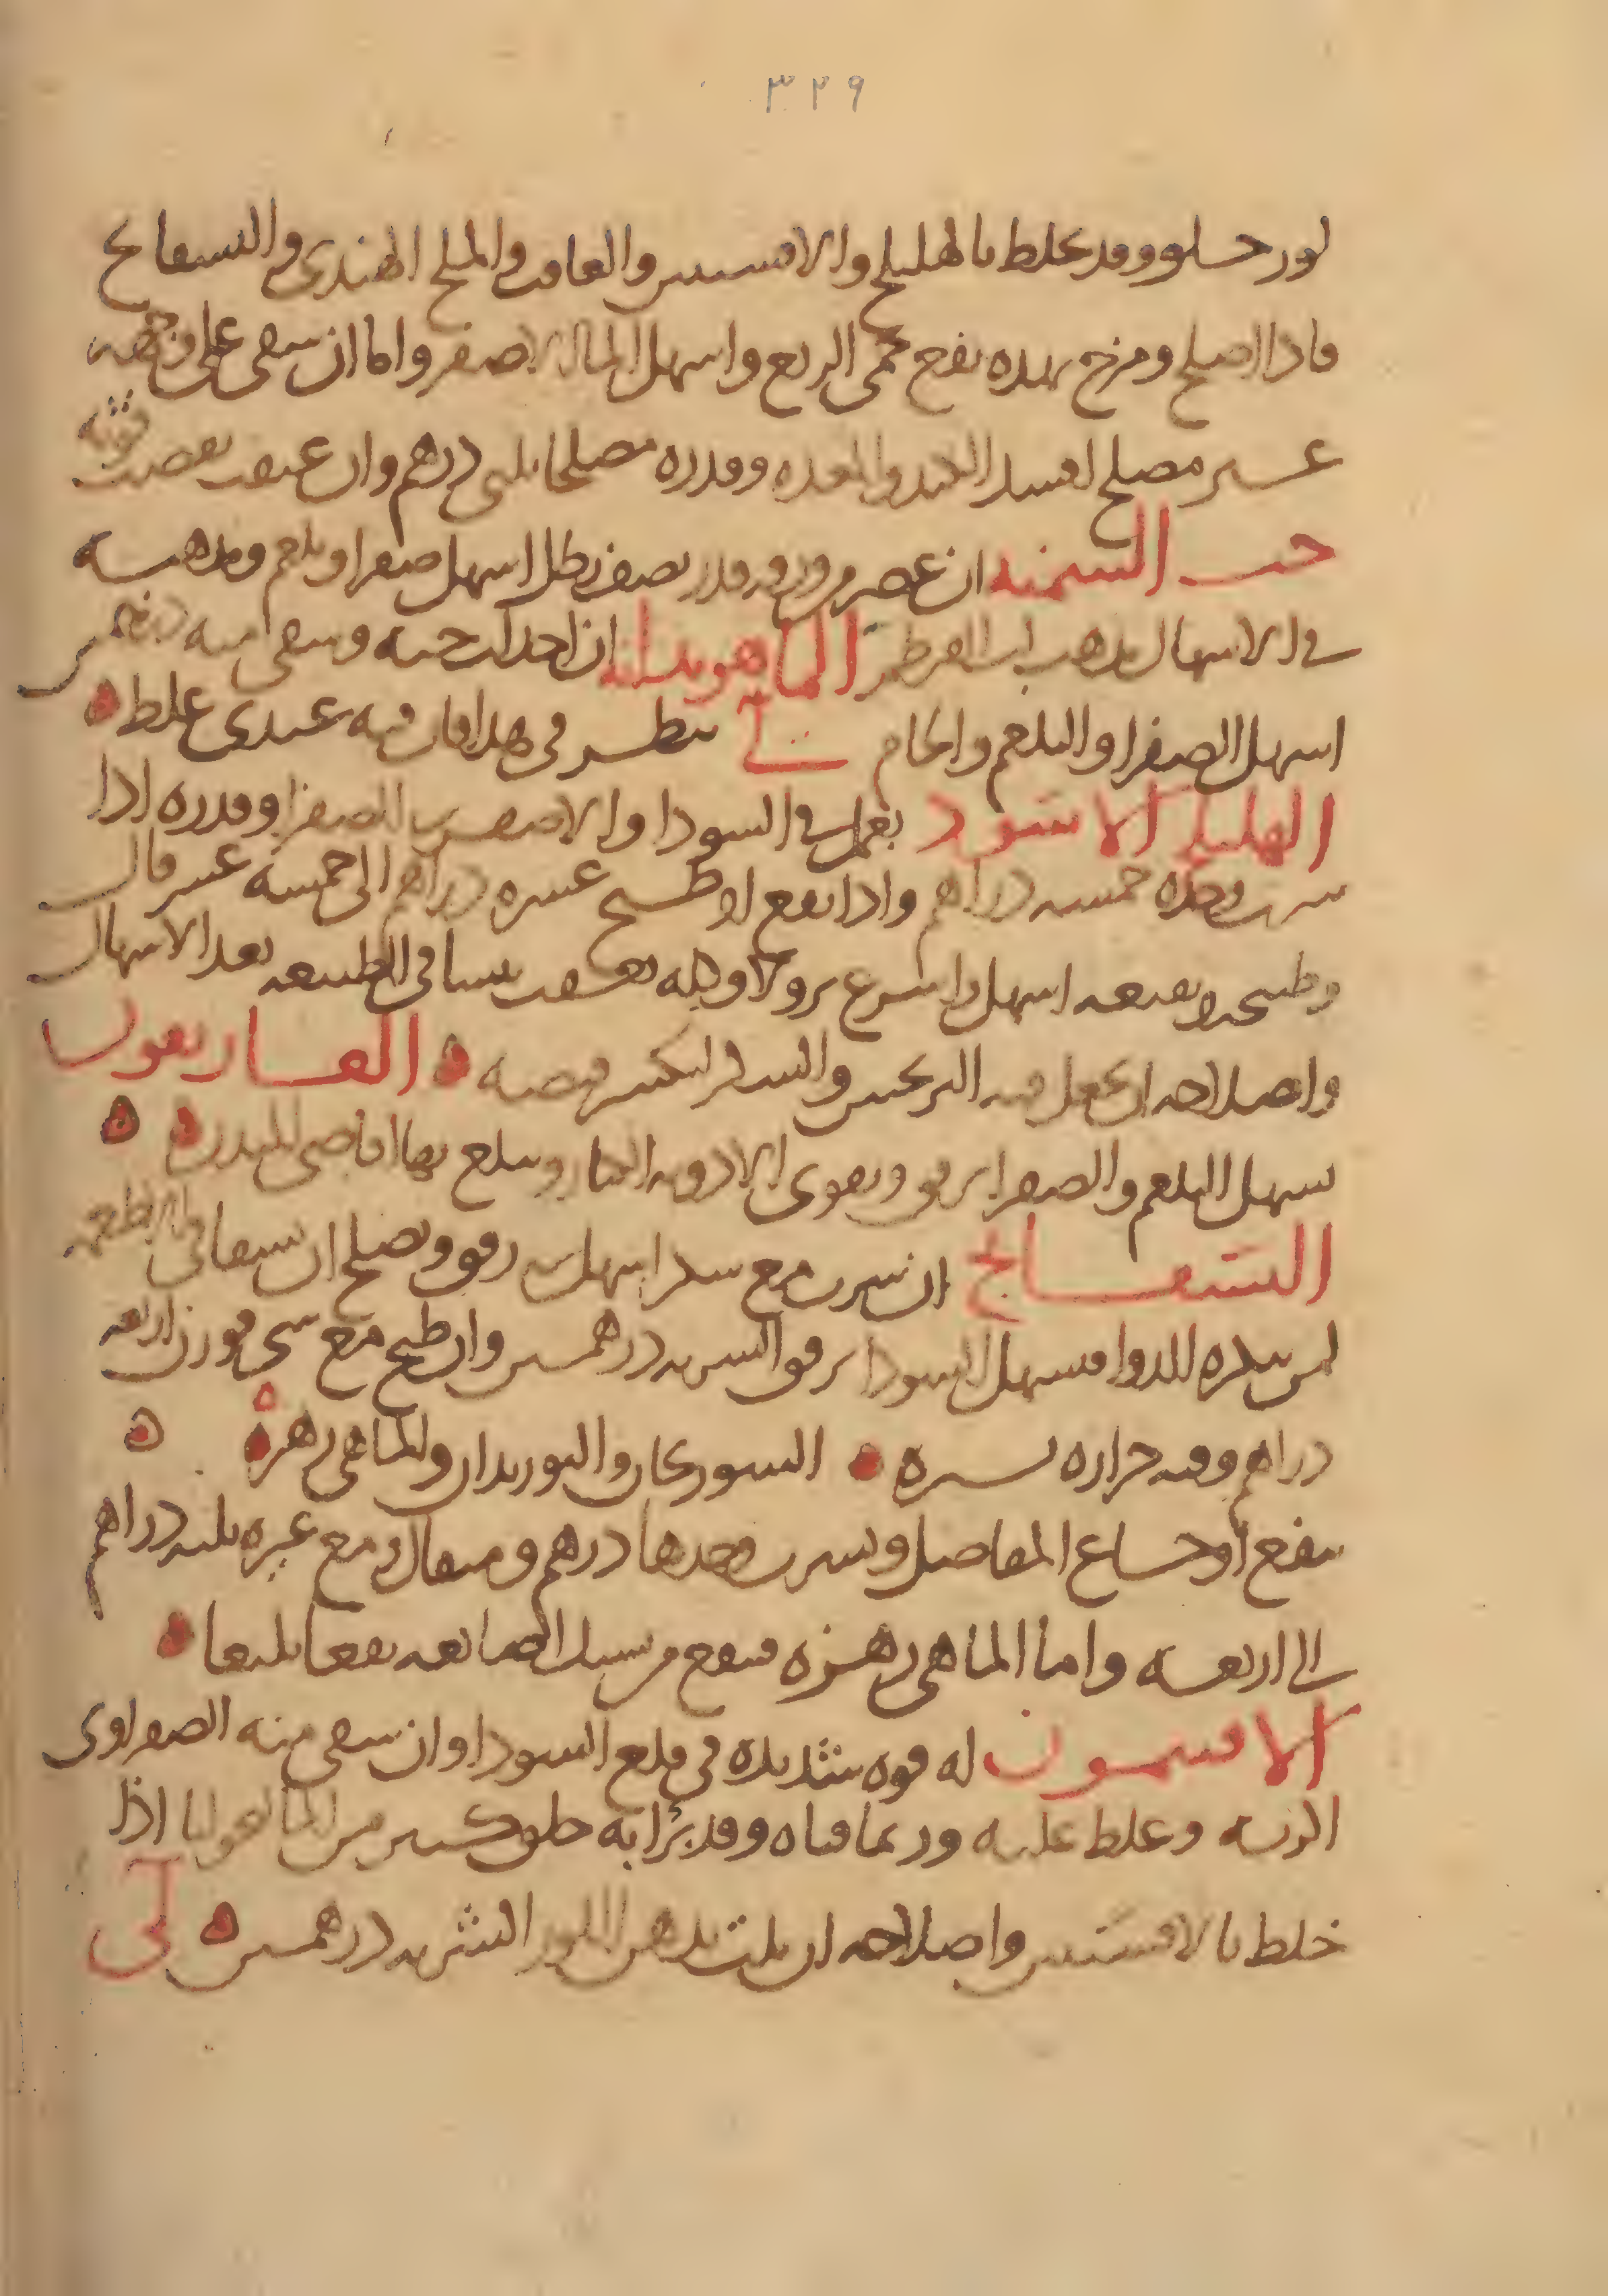 ٣٢٩
لوز حلو وقد يخلط بالهليلج والافسنتين والغافت والملح الهندي والبسفايج
فاذا اصلح ومزج بهذه نفع حمى الربع واسهل الما الاصفر واما ان سقي على وجهه
غير مصلح افسد الكبد والمعدة وقدره مصلحا ثلثي درهم وان عتق نقصت قوته
حب السمنه ان عصر من ورقه قدر نصف رطل اسهل صفرا وبلغم ومذهبه
في الاسهال مذهب لب القرطم الماهودانه ان اخذ حبه وسقي منه
اسهل الصفرا والبلغم والخام لي ينظر في هذا فان فيه عندي غلط
الهليلج الاسود يعمل في السودا والاصفر في الصفرا وقدره اذا
شرب وحده خمسه دراهم واذا نقع او طبخ عشره دراهم الى خمسه عشر قال
وطبخه ونقيعه اسهل واسرع نزولا وله تعقب يبسا في الطبيعه بعد الاسهال
واصلاحه ان يجعل فيه الترنجبين والسكر ليكسر قبضه الغاريقون
يسهل البلغم والصفرا برفق ويقوي الادويه الكبار ويبلغ بها اقاصي البدن
البسفايج ان شرب مع سكر اسهل في رفق ويصلح ان يسقا في الاطعمه
لمن يكره للدوا فيسهل السودا برفق الشربه درهمين وان طبخ مع شي فوزن اربعه
دراهم وفيه حراره يسيره السورنجان والبوزيدان والماهي زهره
ينفع اوجاع المفاصل ويشرب وحدها درهم ومثقال ومع غيره ثلثه دراهم
الى اربعه واما الماهي زهره فينفع من سبيل الصمانعه نفعا بليغا
الافتيمون له قوه شديده في قلع السودا وان سقي منه الصفراوي
اكربه وغلظ عليه وربما قياه وقد برا به خلق كثير من المالنخوليا اذا
خلط بالافسنتين واصلاحه ان يلت بدهن اللوز الشربه درهمين لي